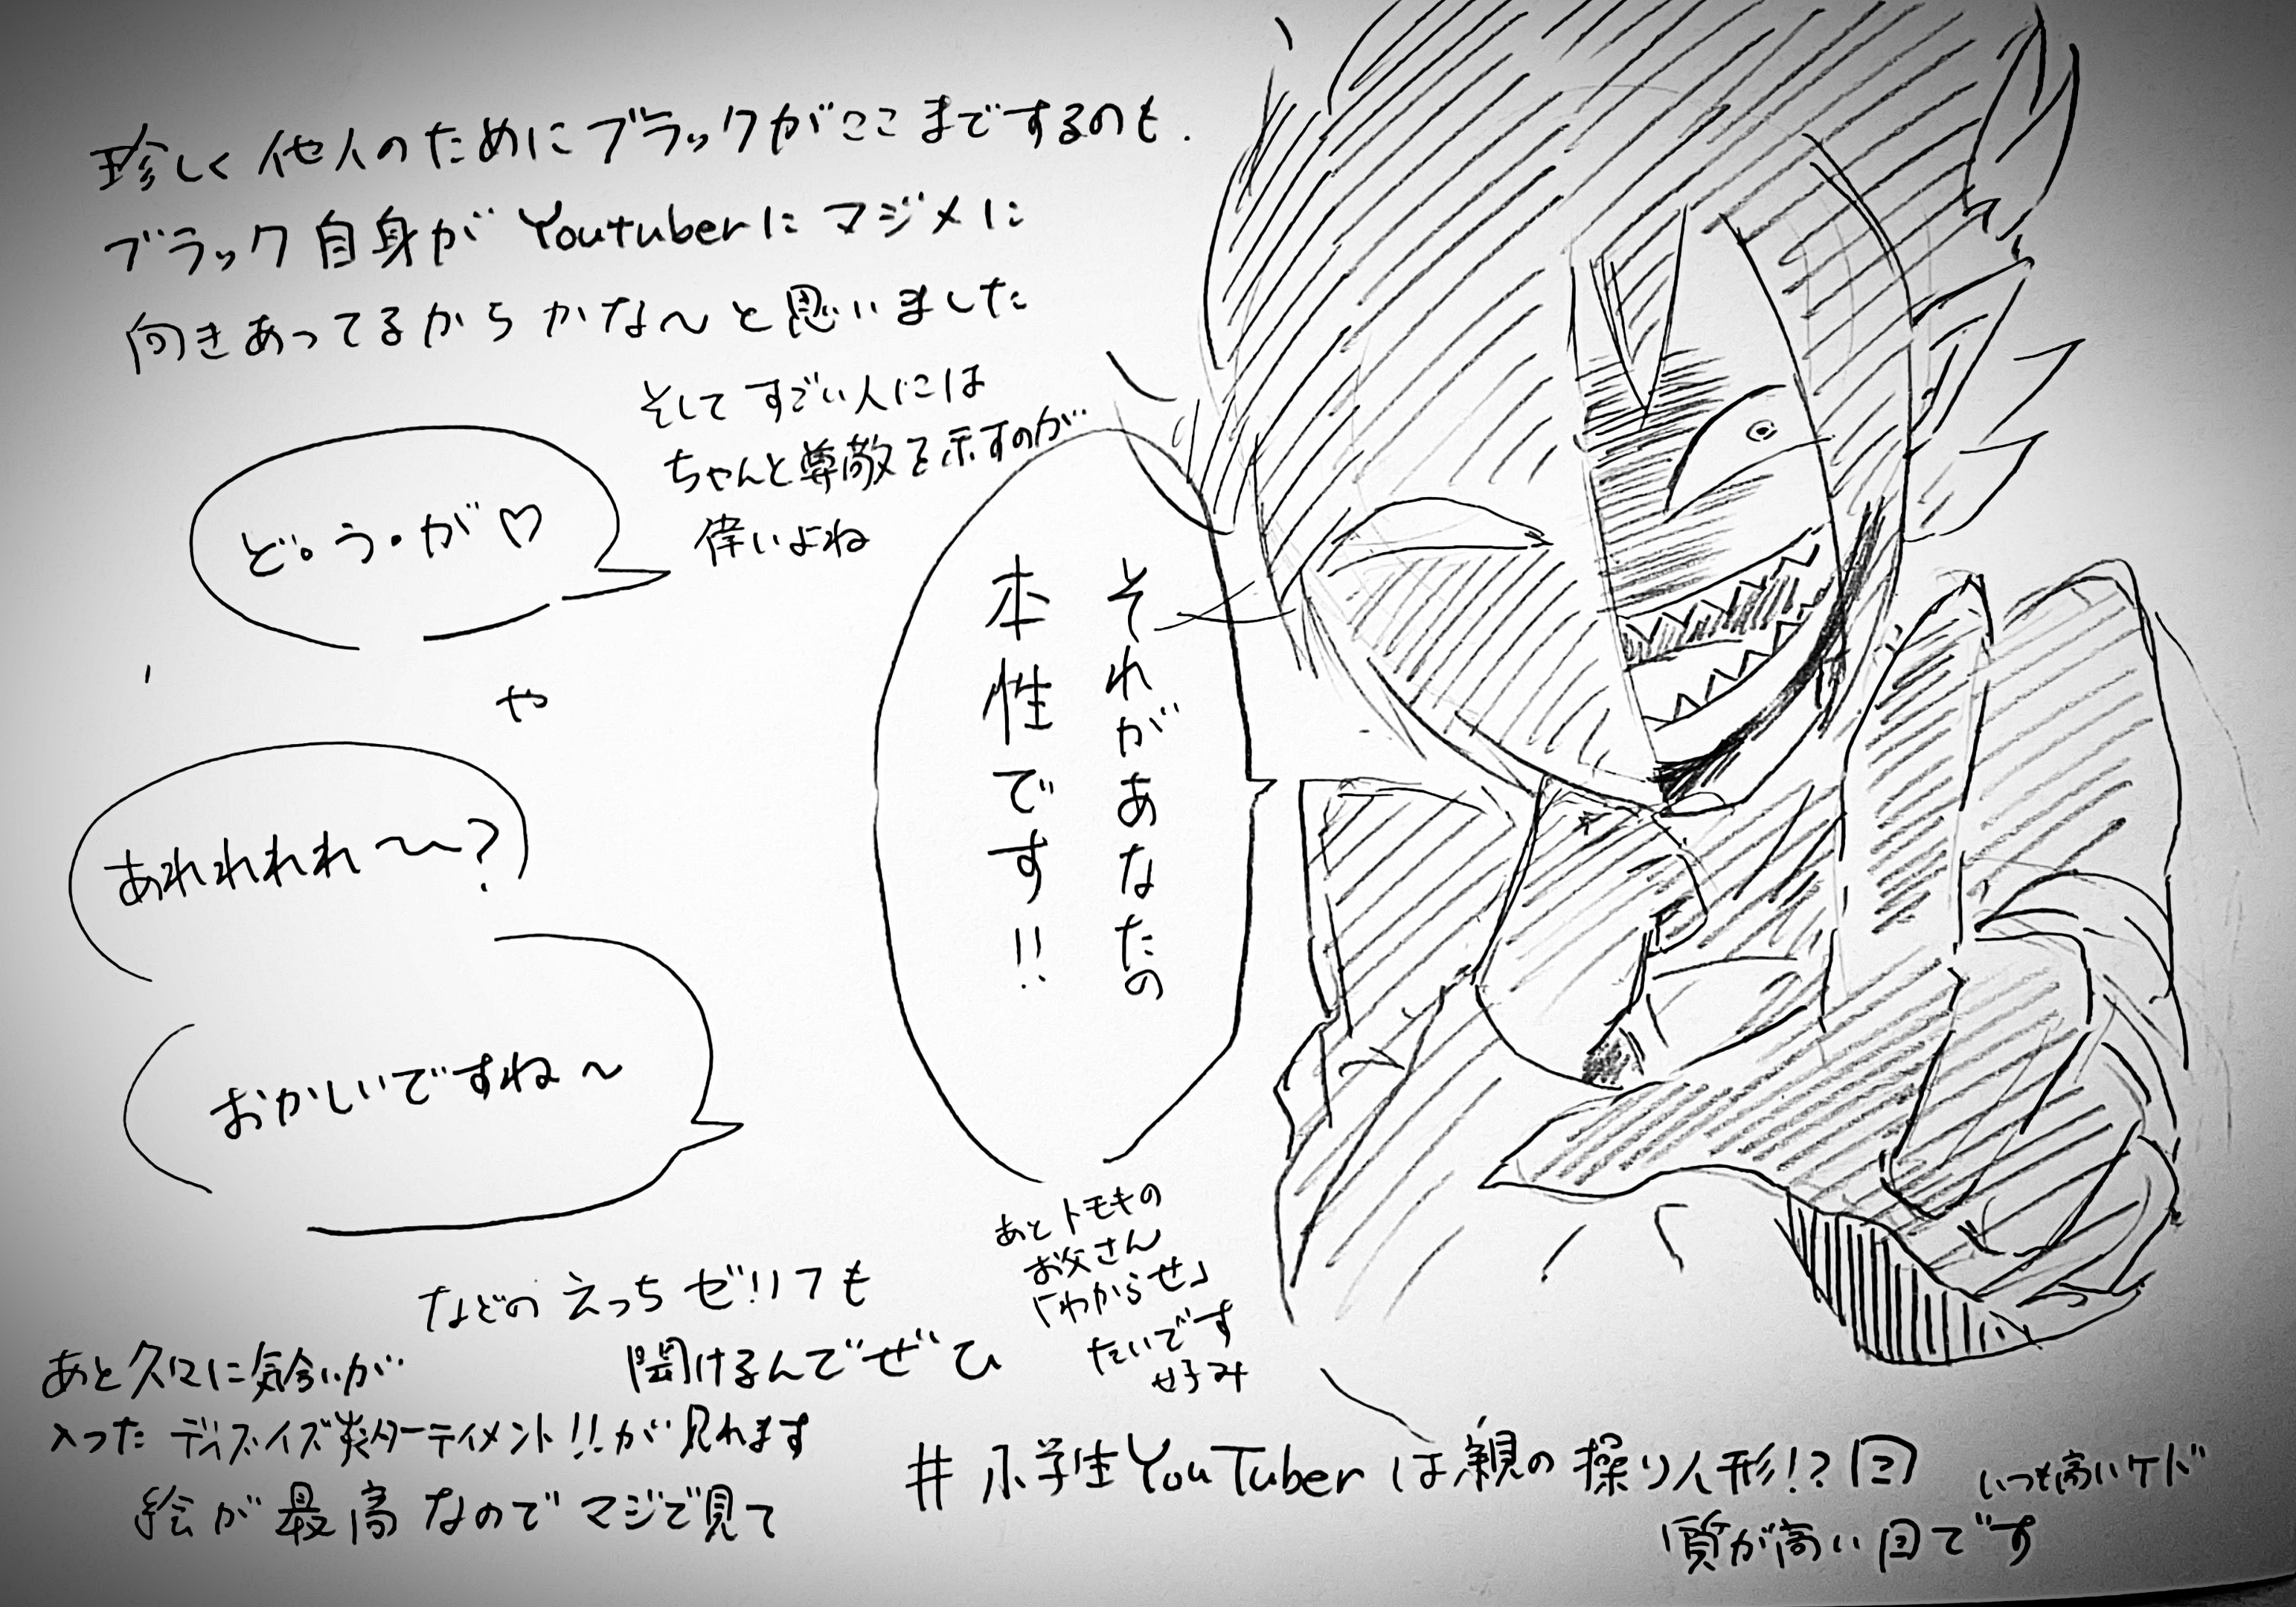 珍しく他人のためにブラックがここまでするのも.
ブラック自身がYoutuberにマジメに
向きあってるからかな〜と思いました
そしてすごい人には
ちゃんと尊敬を示すのが
偉いよね
ど。う・が♡
や
あれれれれ〜?
おかしいですね〜
それがあなたの
本性です!!
などのえっちゼリフも
聞けるんでぜひ
あとトモキの
お父さん
「わからせ」
たいです
好み
あと久々に気合いが
入ったディスイズ炎ターテイメント!!が見れます
絵が最高なのでマジで見て
#小学生YouTuberは親の操り人形!?回
いつも高いケド
質が高い回です